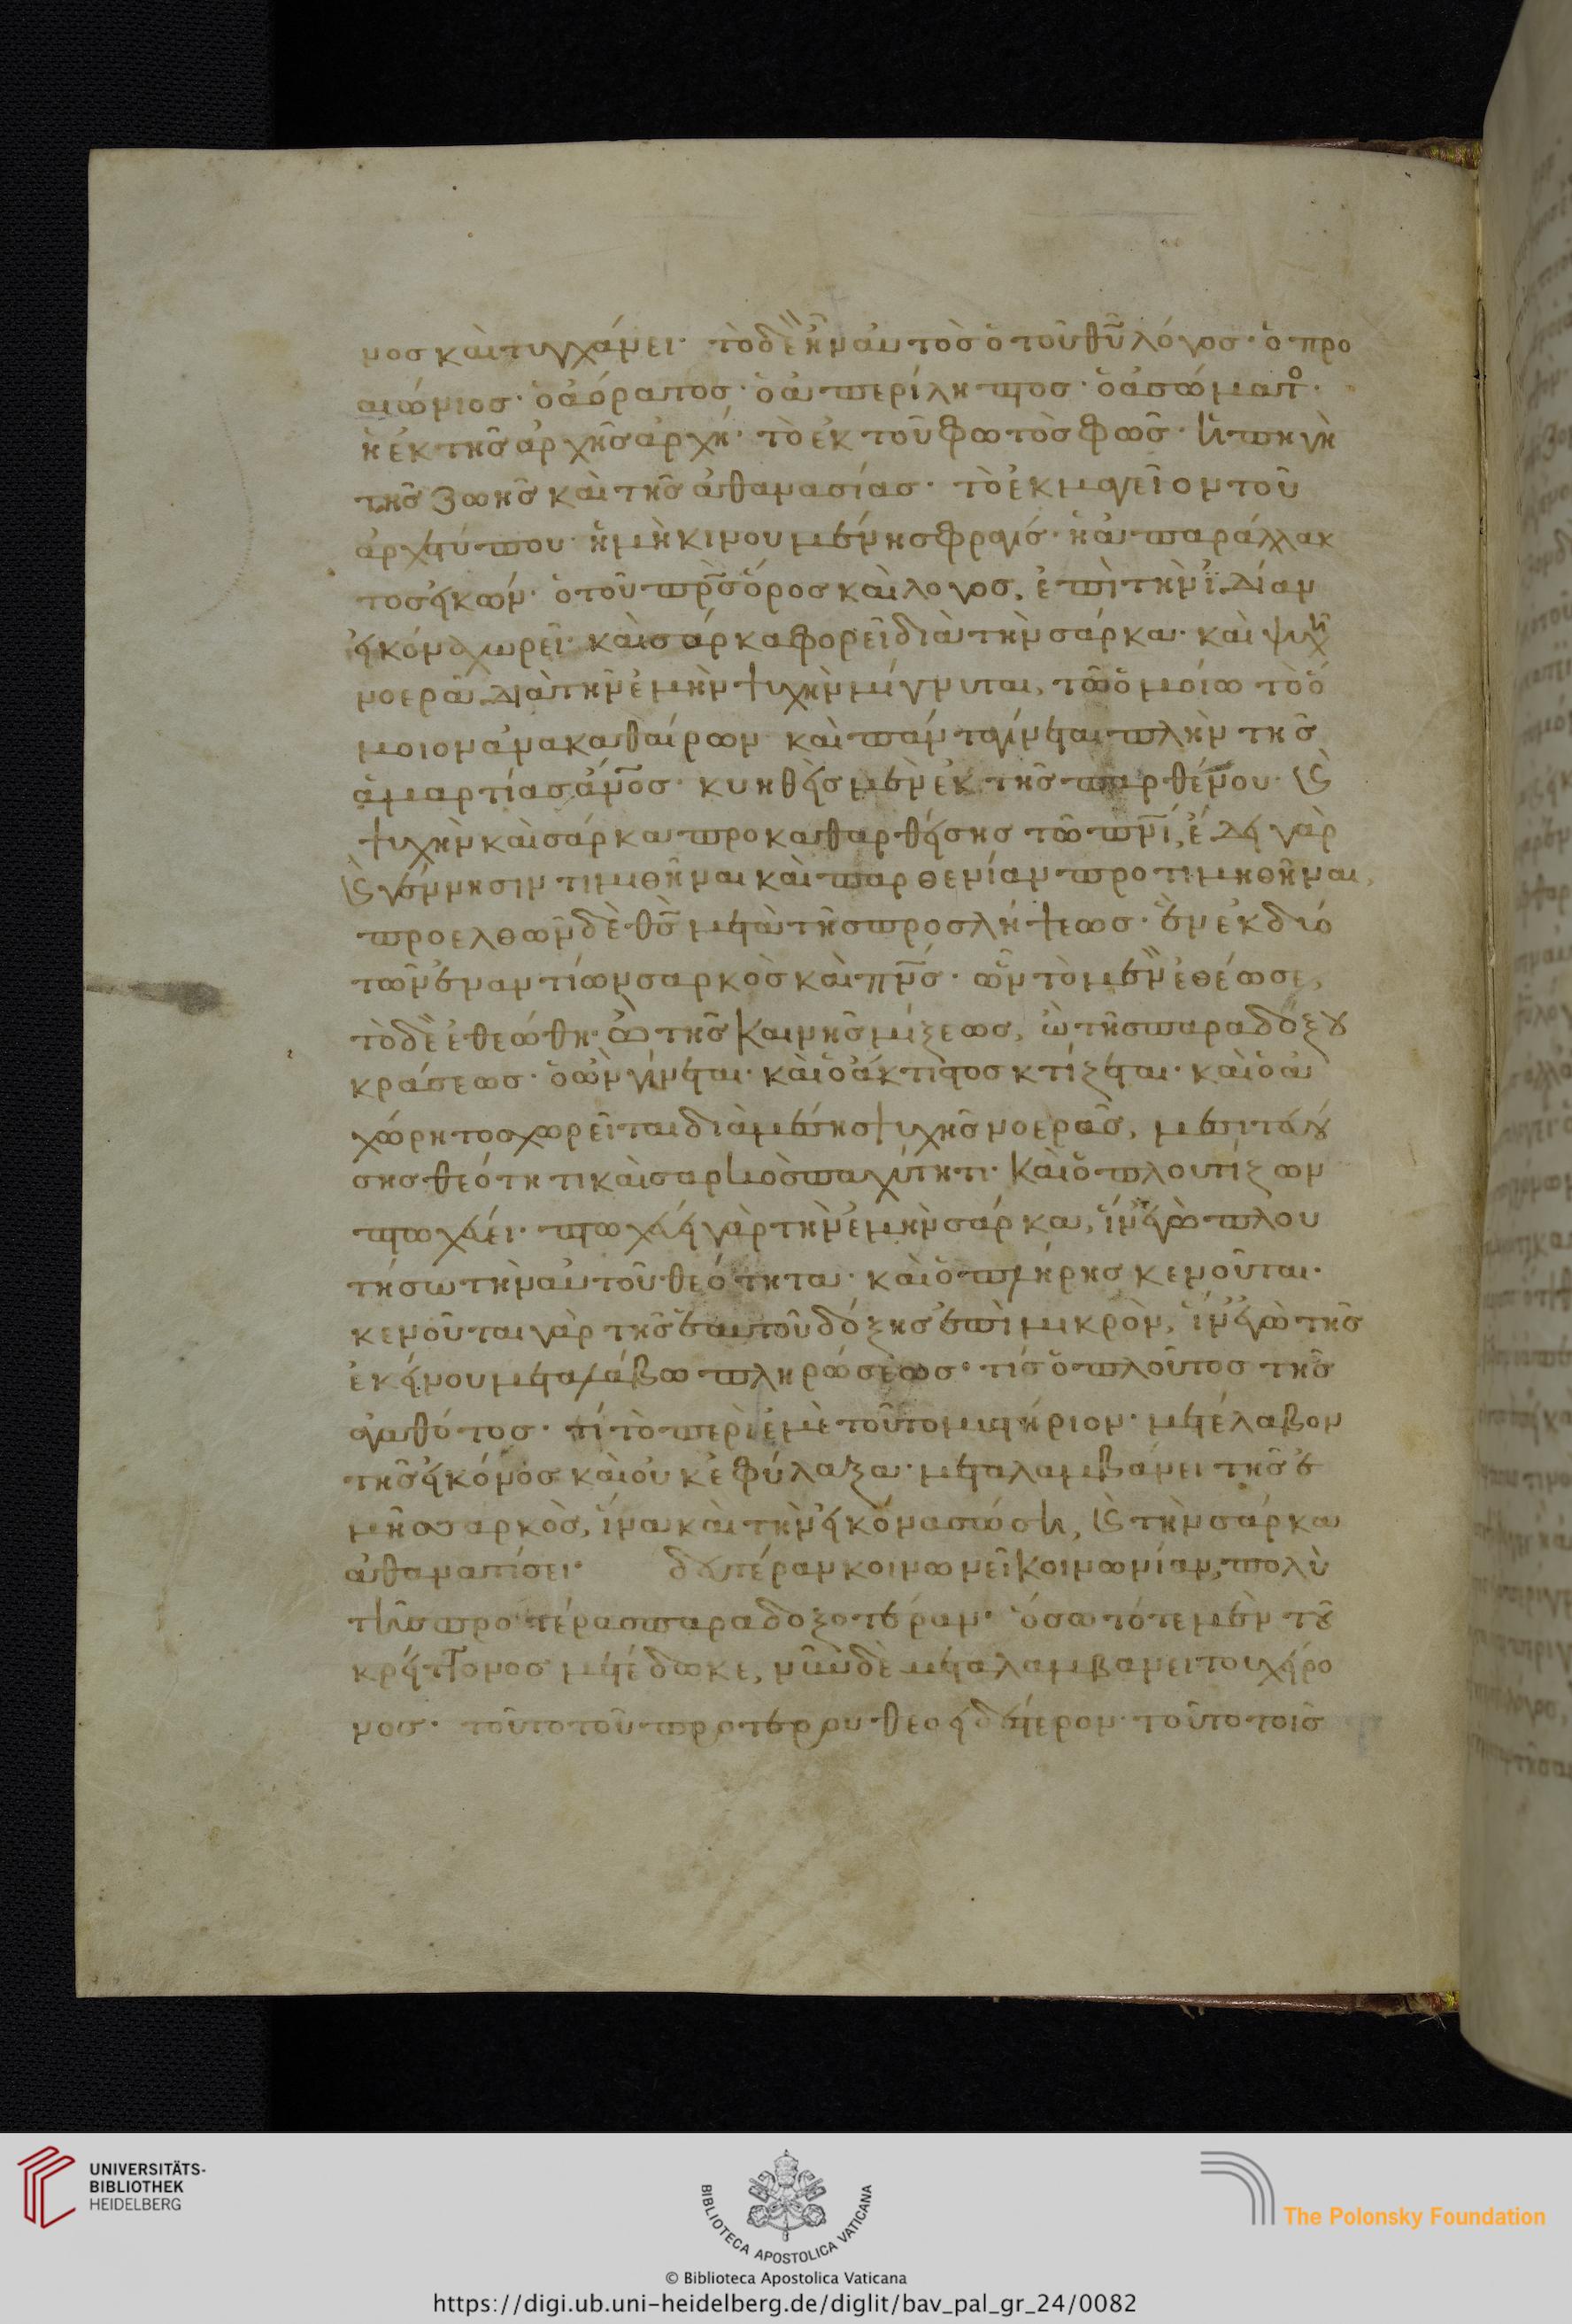 νος καὶ τυγχάνει· τὸ δὲ ἦν αὐτὸς ὁ τοῦ θῦ λόγος· ὁ προ
αιώνιος· ὁ ἀόρατος· ὁ ἀπερίληπτος· ὁ ἀσώματο·
ἡ ἐκ τῆς ἀρχῆς ἀρχή· τὸ ἐκ τοῦ φωτὸς φῶς· ἡ πηγὴ
τῆς ζωῆς καὶ τῆς ἀθανασίας· τὸ ἐκμαγεῖον τοῦ
ἀρχετύπου· ἡ μὴ κινουμένη σφραγίς· ἡ ἀπαράλλακ
τος εἰκών· ὁ τοῦ πρς ὅρος καὶ λόγος, ἐπὶ τὴν ἰδίαν
εἰκόνα χωρεῖ· καὶ σάρκα φορεῖ διὰ τὴν σάρκα· καὶ ψυχῆ
νοερᾶ διὰ τὴν ἐμὴν ψυχὴν μίγνυται, τῶ ὁμοίω τὸ ὅ
μοιον ἀνακαθαίρων καὶ πάντα γίνεται πλὴν τῆς
ἁμαρτίας ἄνος· κυηθεὶς μὲν ἐκ τῆς παρθένου· καὶ
ψυχὴν καὶ σάρκα προκαθαρθείσης τῶ πνι, ἔδει γὰρ
καὶ γέννησιν τιμηθῆναι καὶ παρθενίαν προτιμηθῆναι,
προελθὼν δὲ θς μετὰ τῆς προσλήψεως· ἓν ἐκ δύο
τῶν ἐναντίων σαρκὸς καὶ πνς· ὧν τὸ μὲν ἐθέωσε,
τὸ δὲ ἐθεώθη· ὢ τῆς καινῆς μίξεως, ὢ τῆς παραδόξου
κράσεως· ὁ ὢν γίνεται· καὶ ὁ ἄκτιστος κτίζεται· καὶ ὁ ἀ
χώρητος χωρεῖται διὰ μέσης ψυχῆς νοερᾶς, μεσιτευού
σης θεότητι καὶ σαρκὸς παχύτητι· καὶ ὁ πλουτίζων
πτωχεύει· πτωχεύει γὰρ τὴν ἐμὴν σάρκα, ἵν' ἐγὼ πλου
τήσω τὴν αὐτοῦ θεότητα· καὶ ὁ πλήρης κενοῦται·
κενοῦται γὰρ τῆς ἑαυτοῦ δόξης ἐπὶ μικρὸν, ἵν' ἐγὼ τῆς
ἐκείνου μεταλάβω πληρώσεως· τίς ὁ πλοῦτος τῆς
ἀγαθότητος· τί τὸ περὶ ἐμὲ τοῦτο μυστήριον· μετέλαβον
τῆς εἰκόνος καὶ οὐκ ἐφύλαξα· μεταλαμβάνει τῆς ἐ
μῆς σαρκὸς, ἵνα καὶ τὴν εἰκόνα σώση, καὶ τὴν σάρκα
ἀθανατίσει· δευτέραν κοινωνεῖ κοινωνίαν, πολὺ
τῆς προτέρας παραδοξοτέραν· ὅσω τότε μὲν τοῦ
κρείττονος μετέδωκε, νῦν δὲ μεταλαμβάνει τοῦ χείρο
νος· τοῦτο τοῦ προτέρου θεοειδέστερον· τοῦτο τοῖς
UNIVERSITÄTS-
BIBLIOTHEK
HEIDELBERG
BIBLIOTECA APOSTOLICA VATICANA
The Polonsky Foundation
© Biblioteca Apostolica Vaticana
https://digi.ub.uni-heidelberg.de/diglit/bav_pal_gr_24/0082